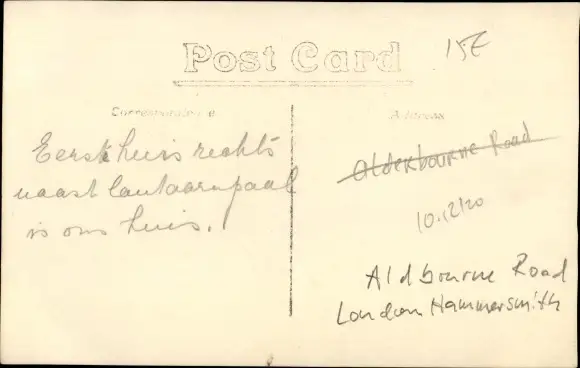 Post Card
15E
Correspondence
Address
Eerste huis rechts
naast lantaarnpaal
is ons huis.
Alderbourne Road
10.12/20
Aldbourne Road
London Hammersmith